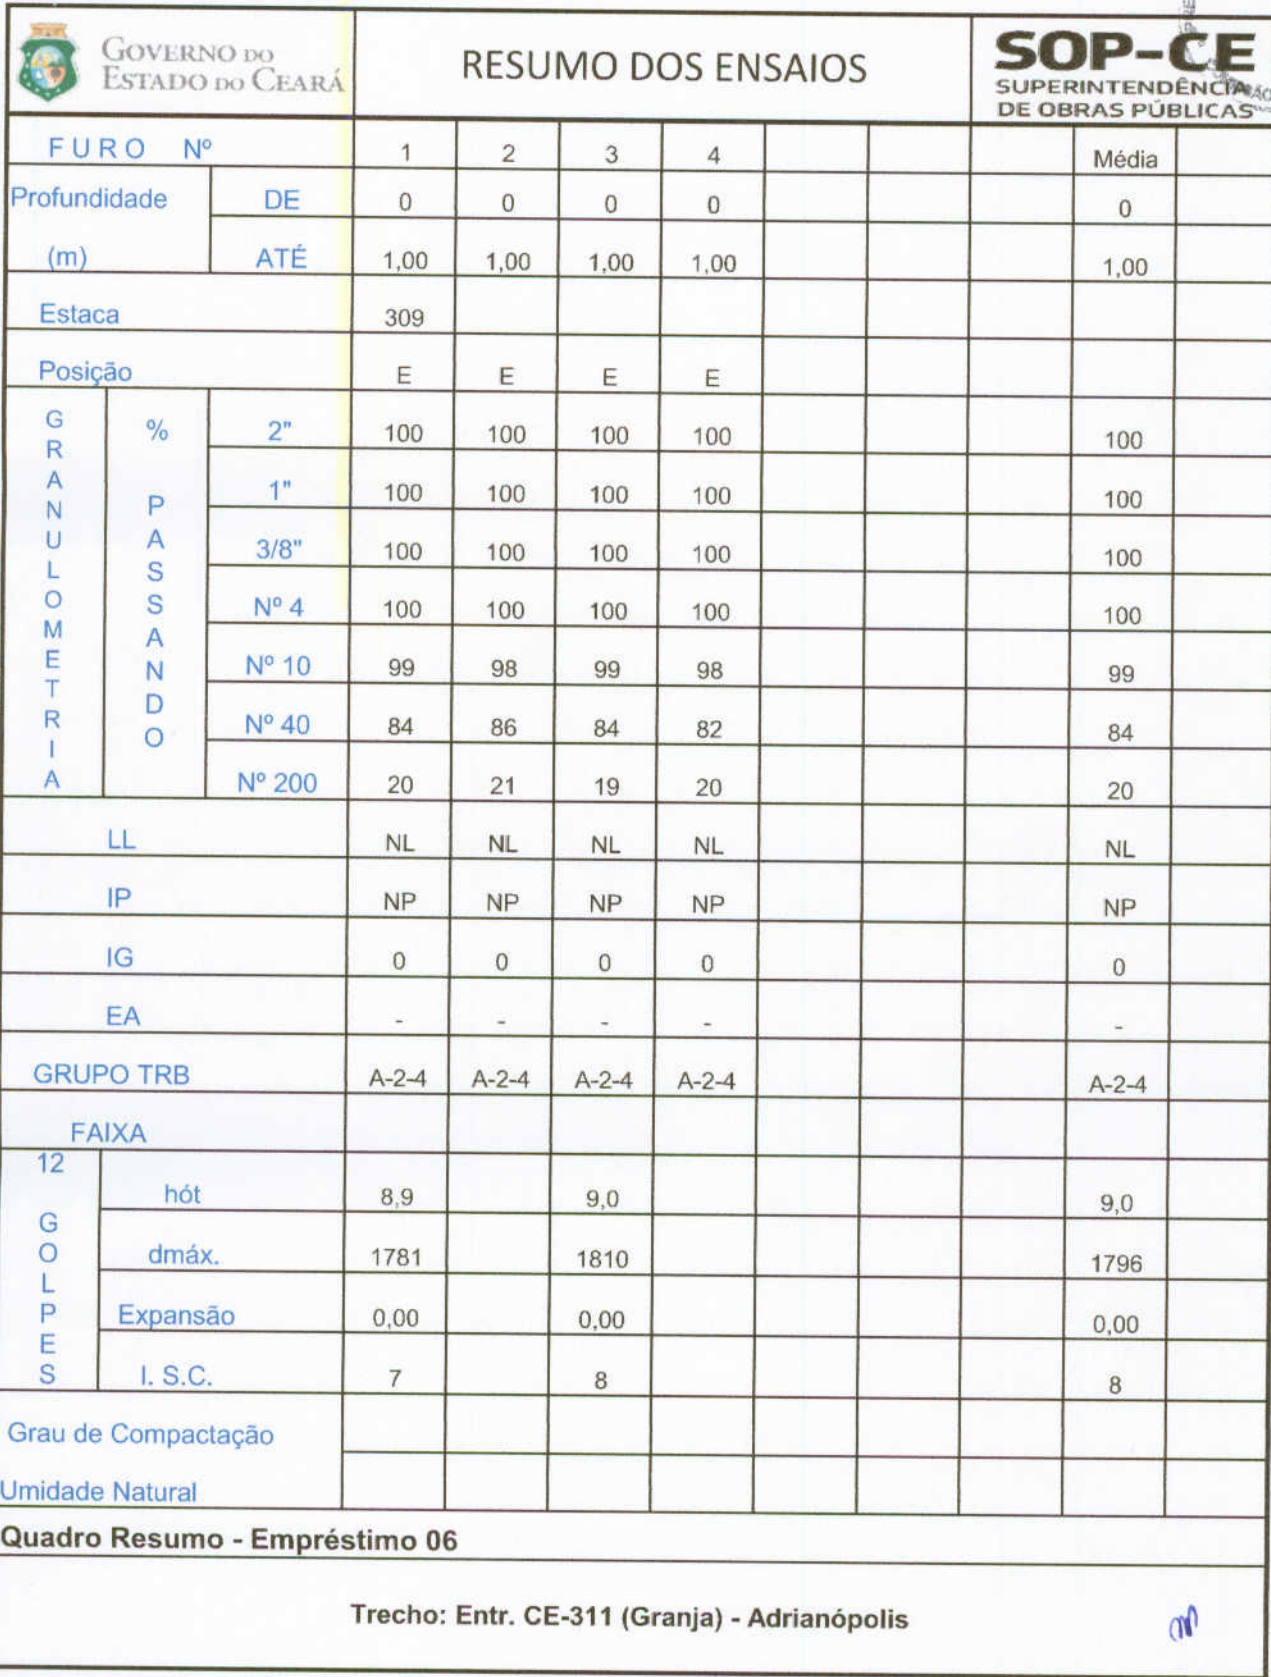 GOVERNO DO
ESTADO DO CEARÁ
RESUMO DOS ENSAIOS
SOP-CE
SUPERINTENDÊNCIA
DE OBRAS PÚBLICAS
FURO Nº 1 2 3 4 Média
Profundidade (m) DE 0 0 0 0 0
ATÉ 1,00 1,00 1,00 1,00 1,00
Estaca 309
Posição E E E E
GRANULOMETRIA
% PASSANDO
2" 100 100 100 100 100
1" 100 100 100 100 100
3/8" 100 100 100 100 100
Nº 4 100 100 100 100 100
Nº 10 99 98 99 98 99
Nº 40 84 86 84 82 84
Nº 200 20 21 19 20 20
LL NL NL NL NL NL
IP NP NP NP NP NP
IG 0 0 0 0 0
EA - - - - -
GRUPO TRB A-2-4 A-2-4 A-2-4 A-2-4 A-2-4
FAIXA
12 GOLPES
hót 8,9 9,0 9,0
dmáx. 1781 1810 1796
Expansão 0,00 0,00 0,00
I. S.C. 7 8 8
Grau de Compactação
Umidade Natural
Quadro Resumo - Empréstimo 06
Trecho: Entr. CE-311 (Granja) - Adrianópolis